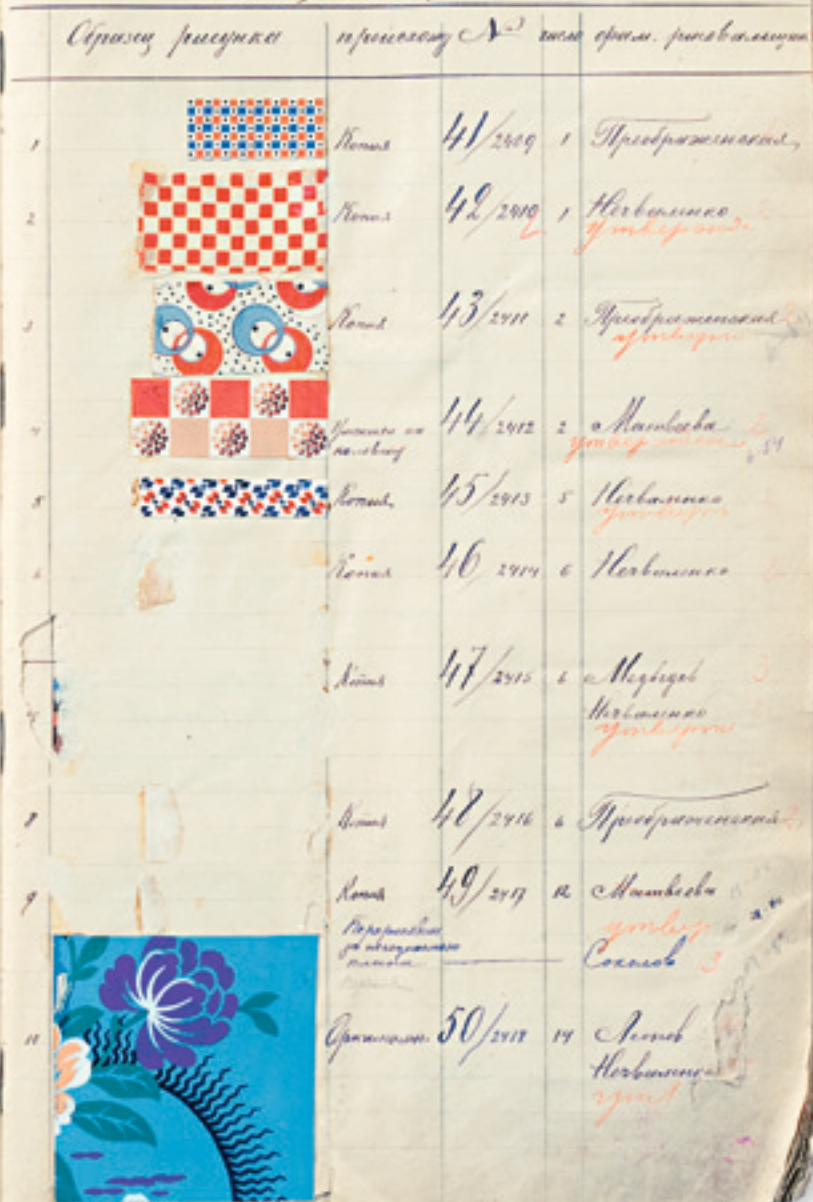 Образец рисунка происхожд № число фам. рисовальщик
1 Копия 41/2409 1 Преображенская
2 Копия 42/2410 1 Нечваленко
утвержд.
3 Копия 43/2411 2 Преображенская 2
утвержд
4 44/2412 2 Матвеева 2
5 Копия 45/2413 5 Нечваленко
утвержд
6 Копия 46/2414 6 Нечваленко
47/2415 6 Медведев 3
Нечваленко
утвержд
8 Копия 48/2416 6 Преображенская 2
9 Копия 49/2417 12 Матвеева
утвер
Перерисовка
Соколов 3
50/2418 14 Леонов
Нечваленко
утв